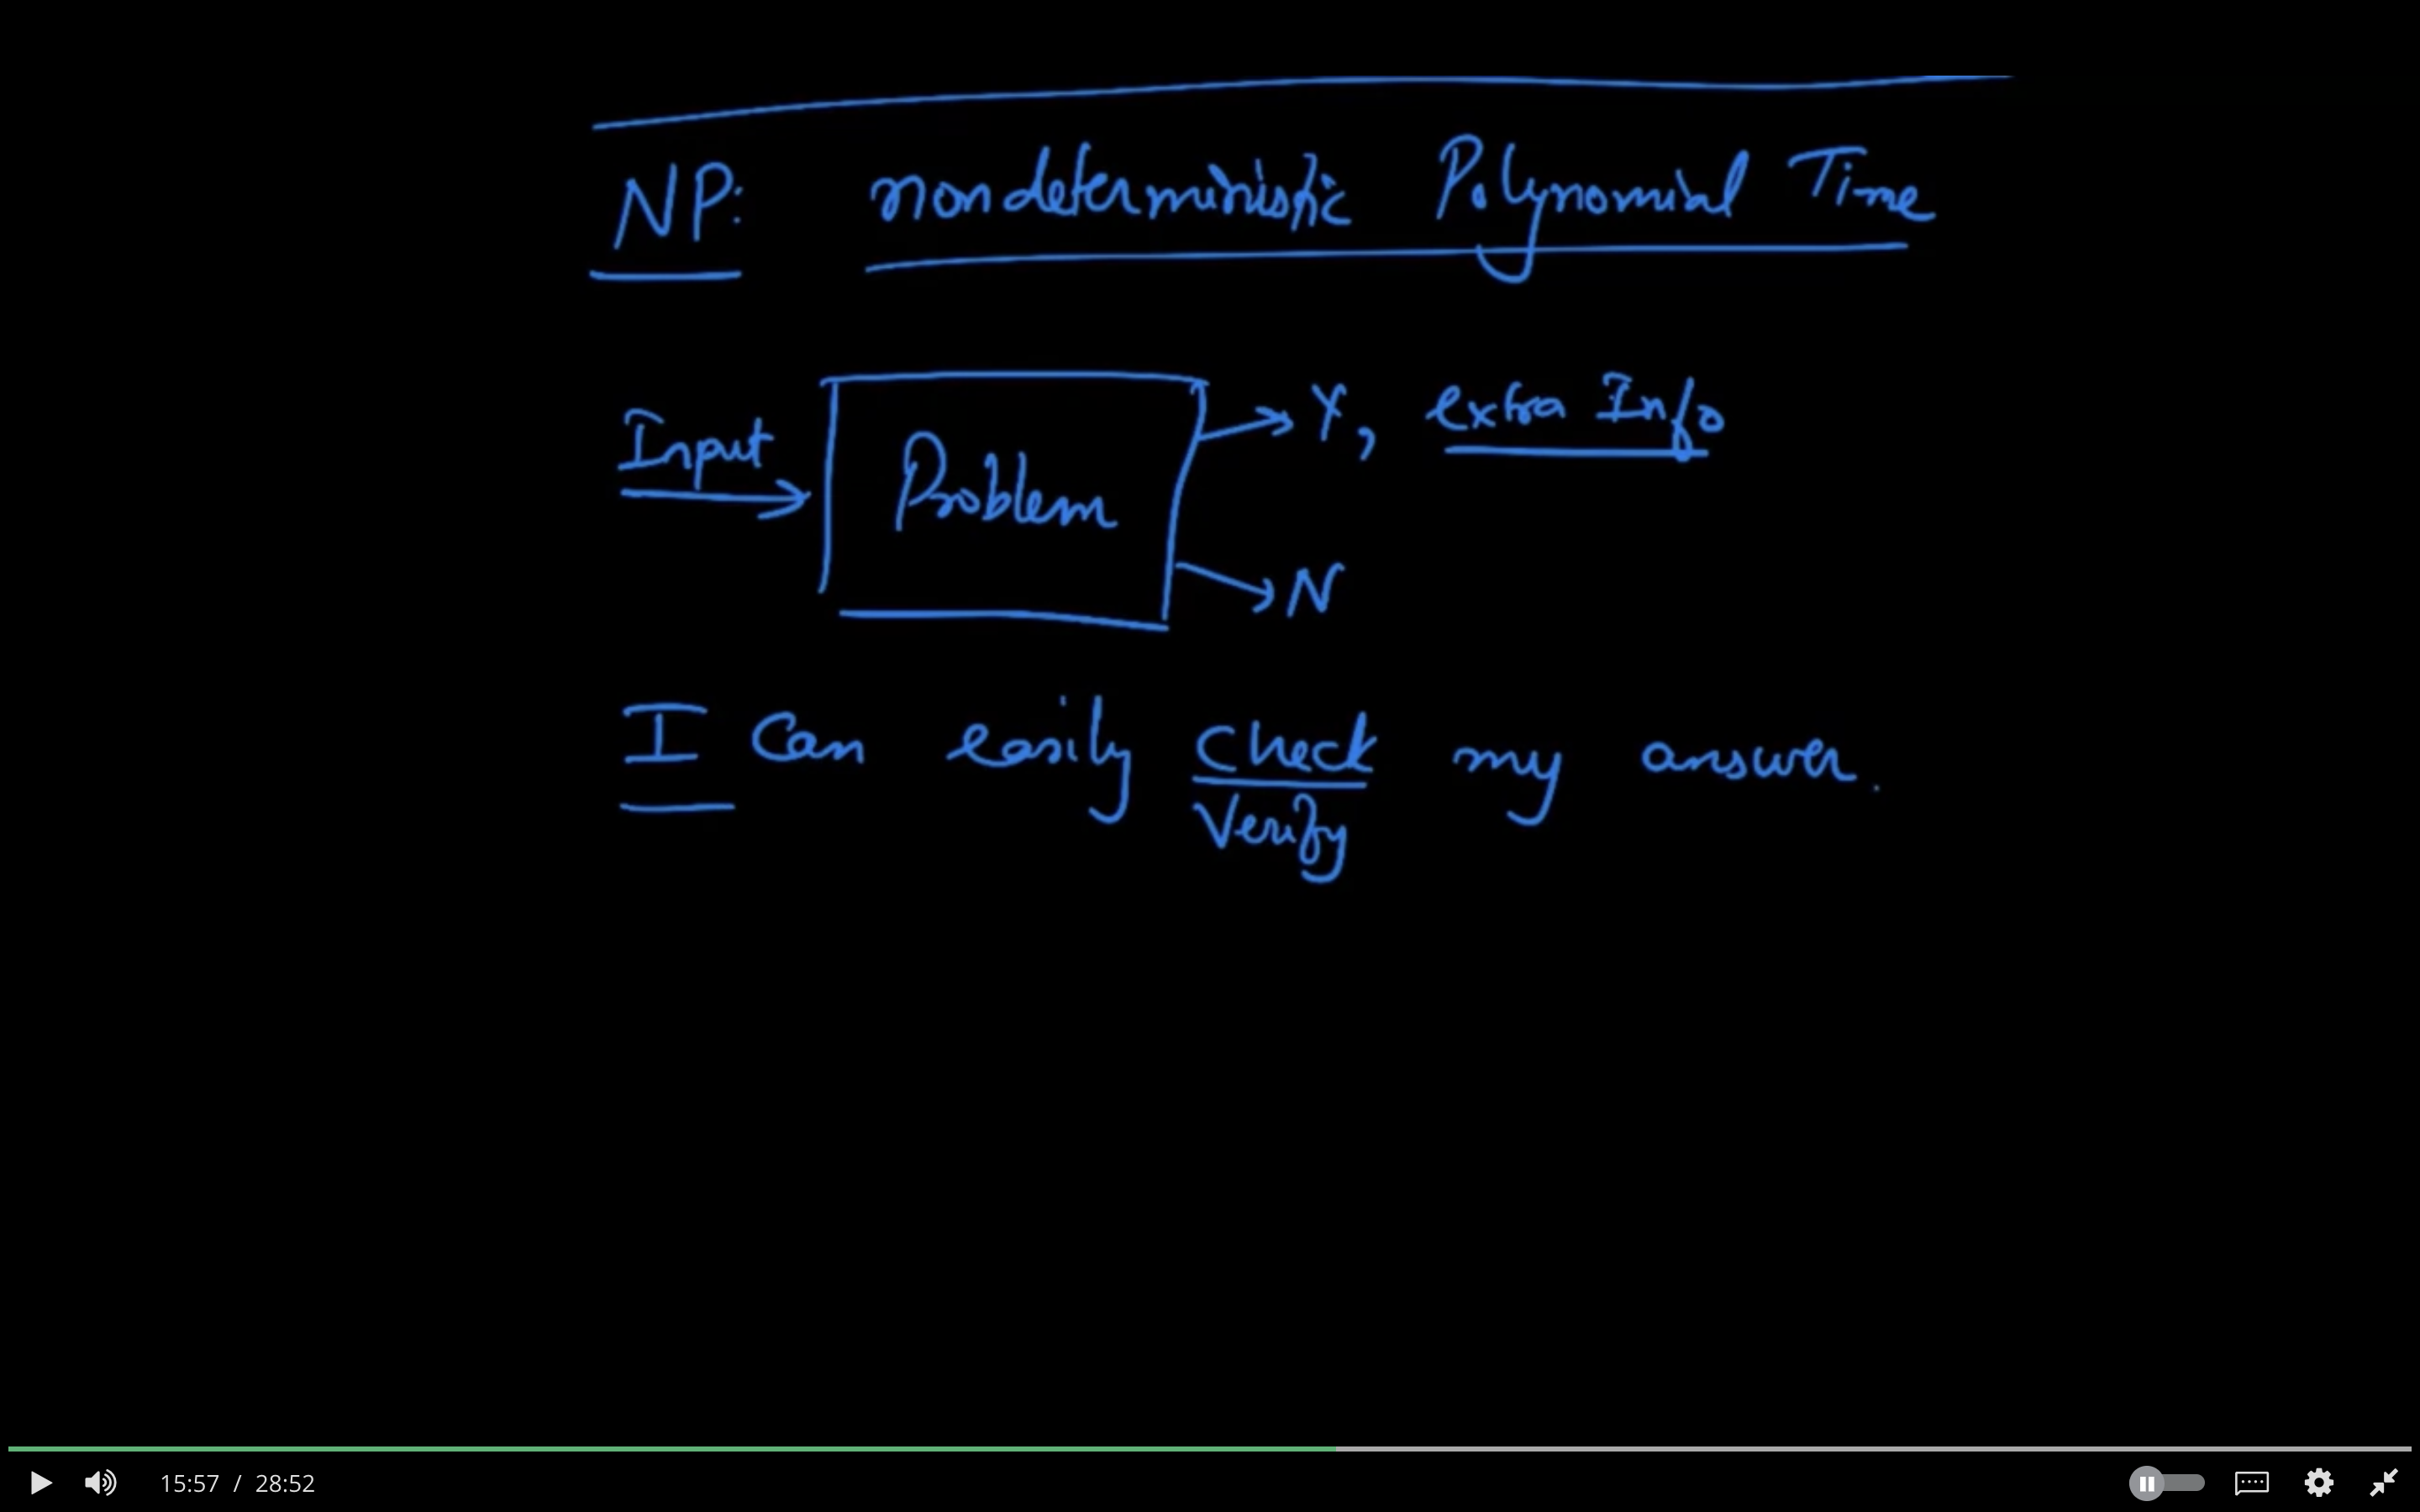 NP: nondeterministic Polynomial Time
Input
Problem
Y, extra Info
N
I Can easily Check my answer.
Verify
15:57 / 28:52